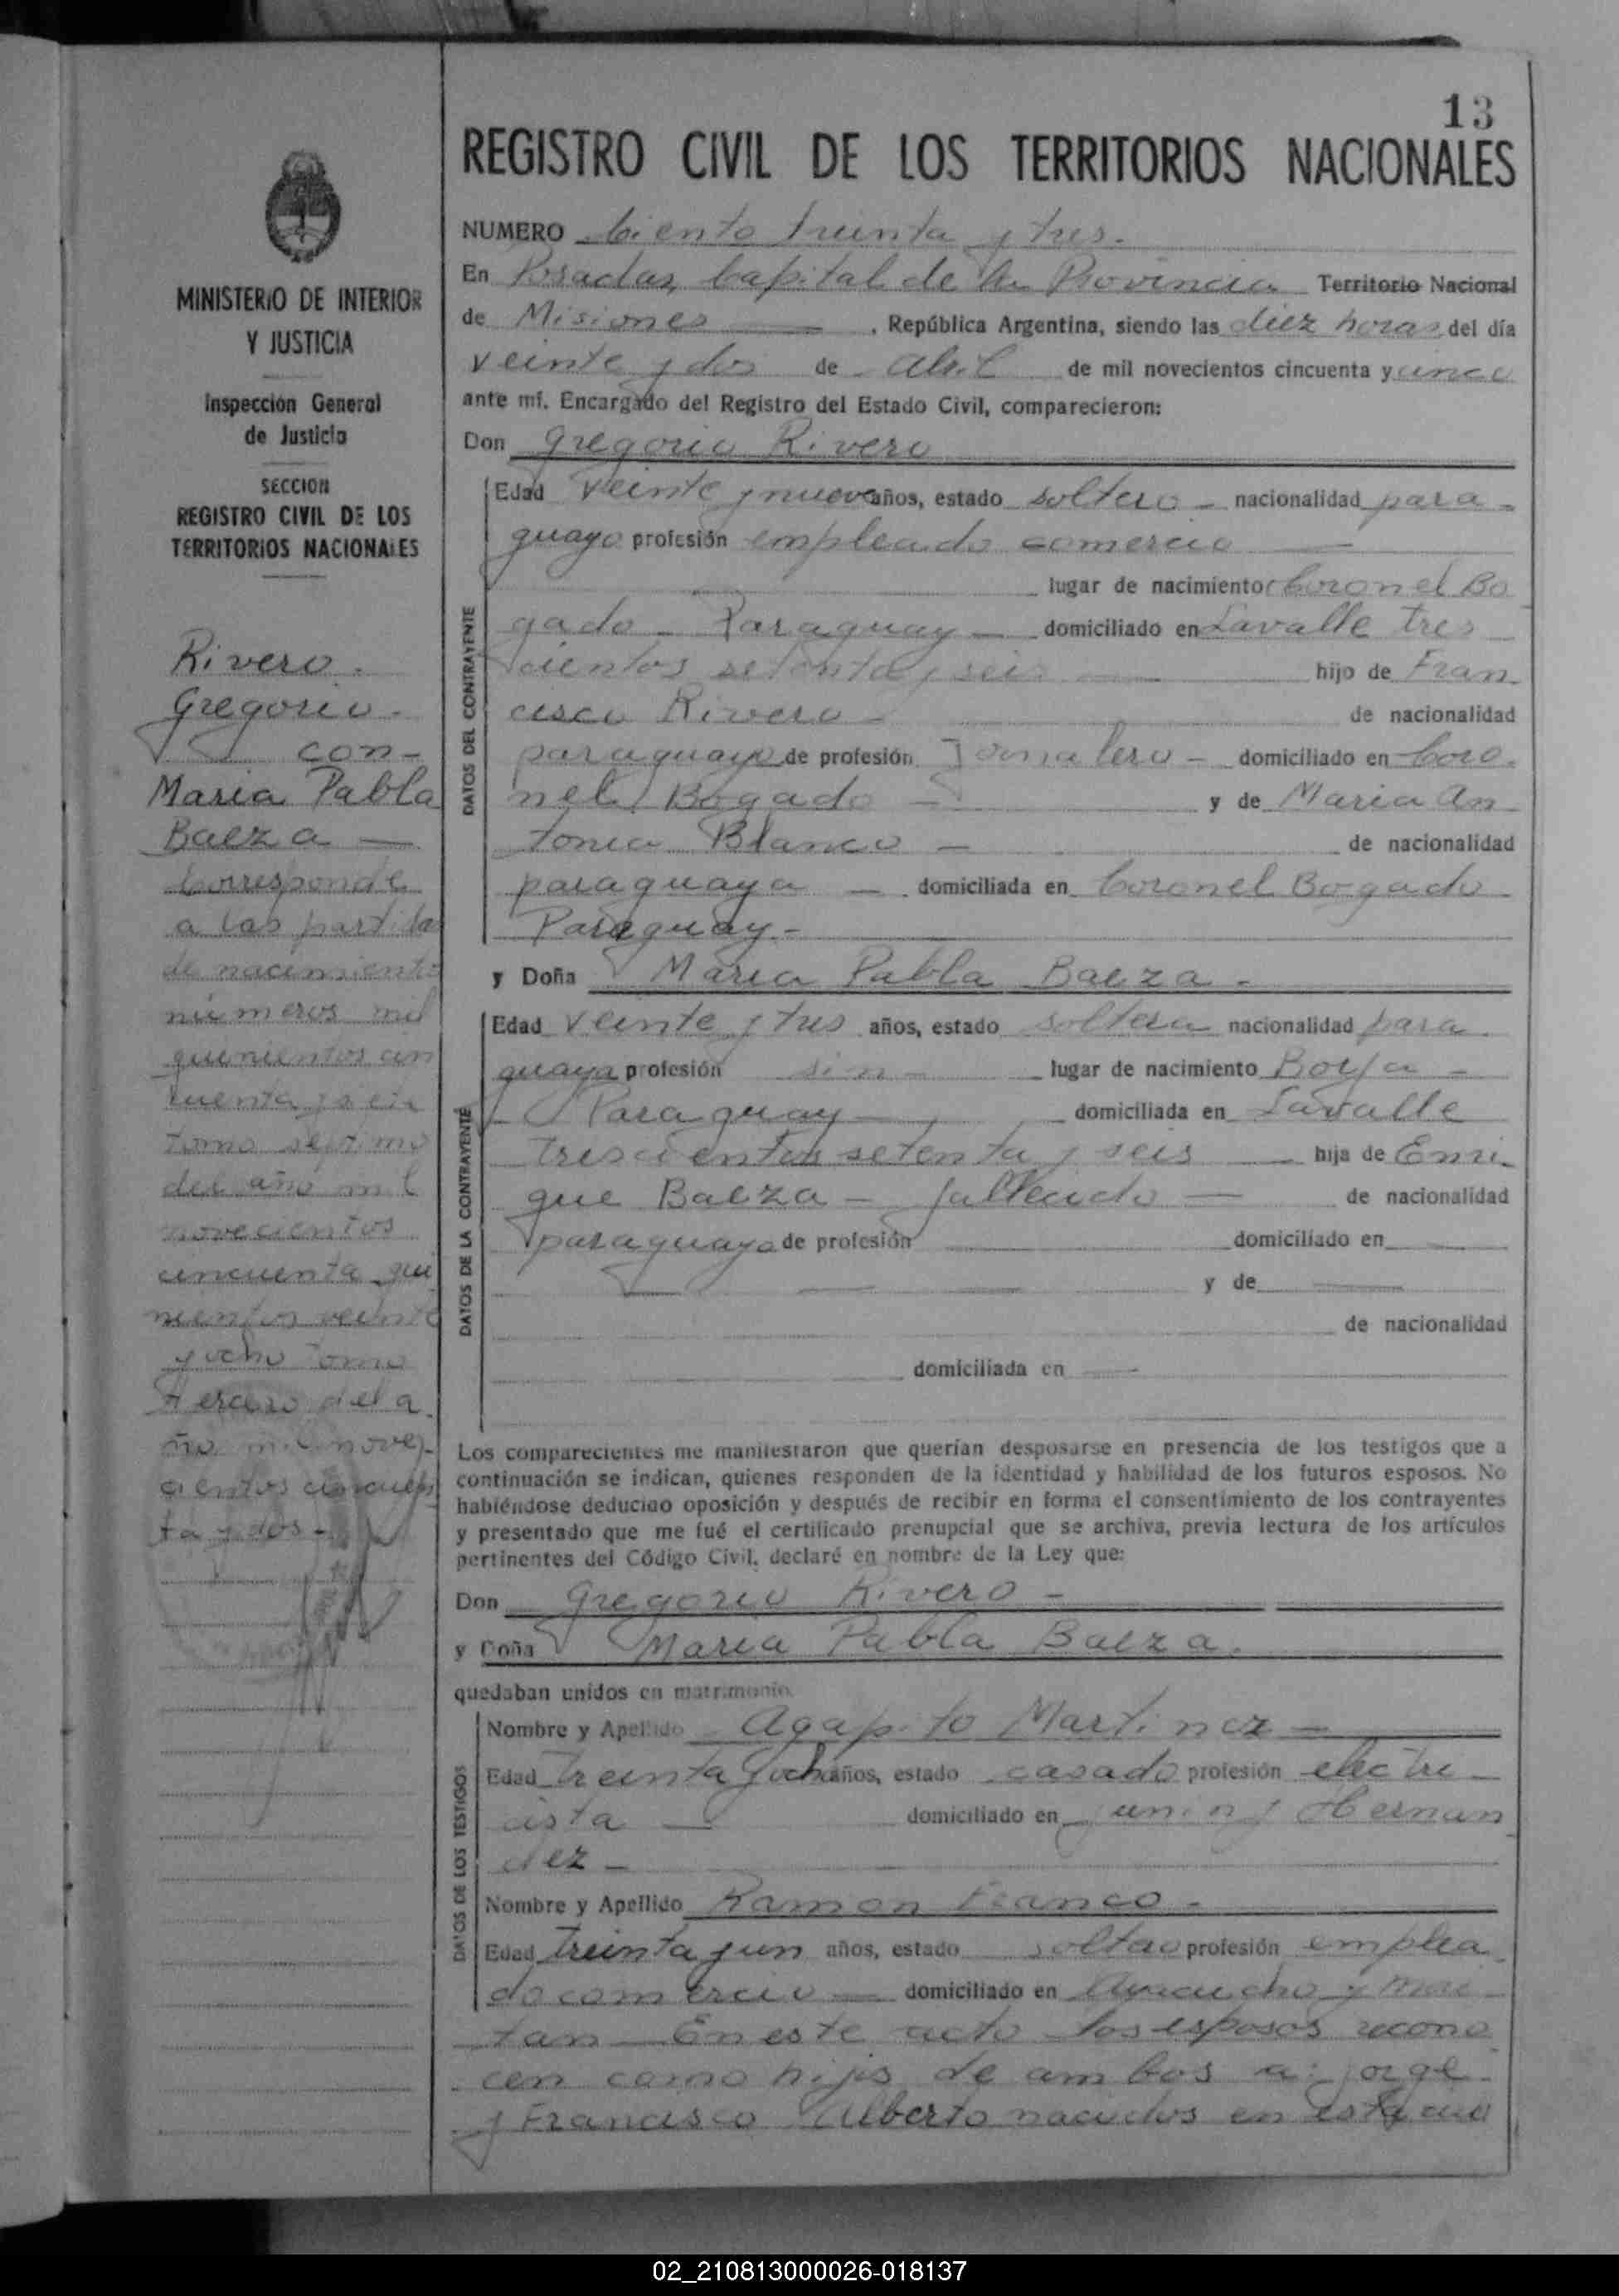 13
REGISTRO CIVIL DE LOS TERRITORIOS NACIONALES
MINISTERIO DE INTERIOR
Y JUSTICIA
Inspección General
de Justicia
SECCION
REGISTRO CIVIL DE LOS
TERRITORIOS NACIONALES
Rivero.
Gregorio.
con-
Maria Pabla
Baeza —
Corresponde
a las partidas
de nacimiento
números mil
quinientos cin
cuenta y seis
tomo septimo
del año mil
novecientos
cincuenta qui
nientos veinte
y ocho tomo
tercero del a
ño mil nove-
cientos cincuen
ta y dos-
NUMERO Ciento treinta y tres.
En Posadas, Capital de la Provincia Territorio Nacional
de Misiones — , República Argentina, siendo las diez horas del día
veinte y dos de Abril de mil novecientos cincuenta y cinco
ante mí. Encargado del Registro del Estado Civil, comparecieron:
Don Gregorio Rivero
DATOS DEL CONTRAYENTE
Edad veinte y nueve años, estado soltero - nacionalidad para-
guayo profesión empleado comercio —
lugar de nacimiento Coronel Bo
gado - Paraguay — domiciliado en Lavalle tres
cientos setenta y seis — hijo de Fran
cisco Rivero - de nacionalidad
paraguayo de profesión Jornalero - domiciliado en Coro.
nel Bogado — y de Maria An
tonia Blanco - de nacionalidad
paraguaya — domiciliada en Coronel Bogado
Paraguay.-
y Doña Maria Pabla Baeza.
DATOS DE LA CONTRAYENTE
Edad veinte y tres años, estado soltera nacionalidad para
guaya profesión sin - lugar de nacimiento Borja -
Paraguay — domiciliada en Lavalle
trescientos setenta y seis — hija de Enri
que Baeza - fallecido — de nacionalidad
paraguayo de profesión domiciliado en
y de
de nacionalidad
domiciliada en
Los comparecientes me manifestaron que querían desposarse en presencia de los testigos que a
continuación se indican, quienes responden de la identidad y habilidad de los futuros esposos. No
habiéndose deducido oposición y después de recibir en forma el consentimiento de los contrayentes
y presentado que me fué el certificado prenupcial que se archiva, previa lectura de los artículos
pertinentes del Código Civil, declaré en nombre de la Ley que:
Don Gregorio Rivero -
y Doña Maria Pabla Baeza.
quedaban unidos en matrimonio.
DATOS DE LOS TESTIGOS
Nombre y Apellido Agapito Martinez —
Edad treinta y ocho años, estado casado profesión electri
cista — domiciliado en Junin y Hernan
dez -
Nombre y Apellido Ramon Franco -
Edad treinta y un años, estado soltero profesión emplea
do comercio — domiciliado en Ayacucho y
tan — En este acto los esposos recono
cen como hijos de ambos a: Jorge
y Francisco Alberto nacidos en esta
02_210813000026-018137